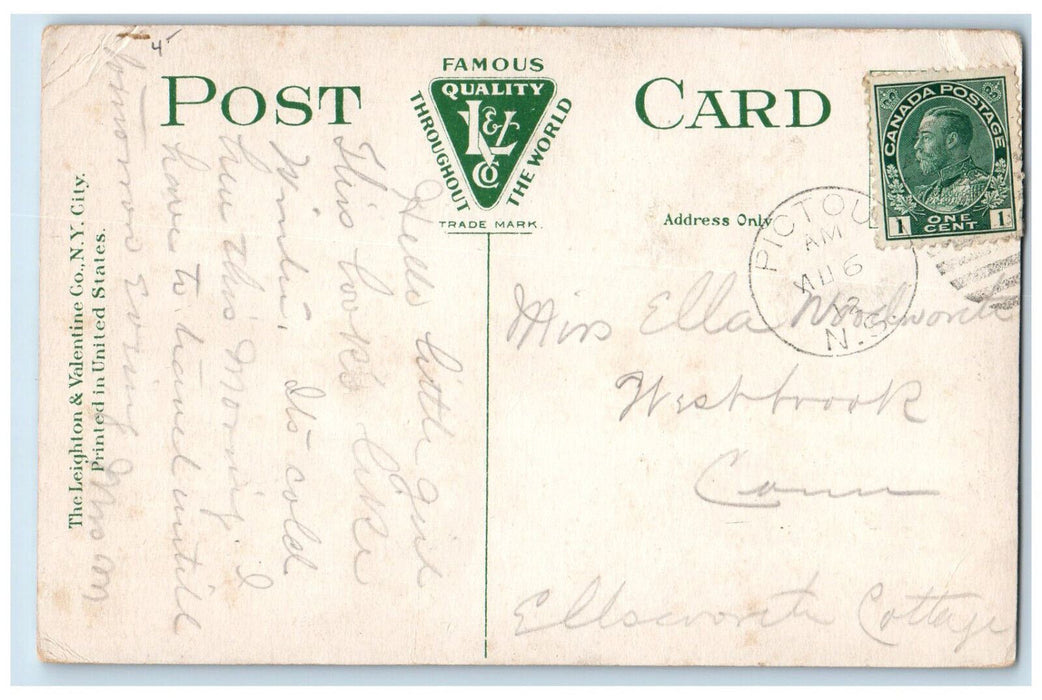 4
POST CARD
FAMOUS
QUALITY
L&V
Co
THROUGHOUT
THE WORLD
TRADE MARK.
CANADA POSTAGE
1 ONE CENT 1
Address Only
PICTOU
AM
AU 6
N.S.
The Leighton & Valentine Co., N.Y. City.
Printed in United States.
Hello little girl
This looks like
Winter. Its cold
here this Morning. I
have to travel untill
tomorrow Evening
Miss Ella Woodworth
Westbrook
Conn
Ellsworth Cottage